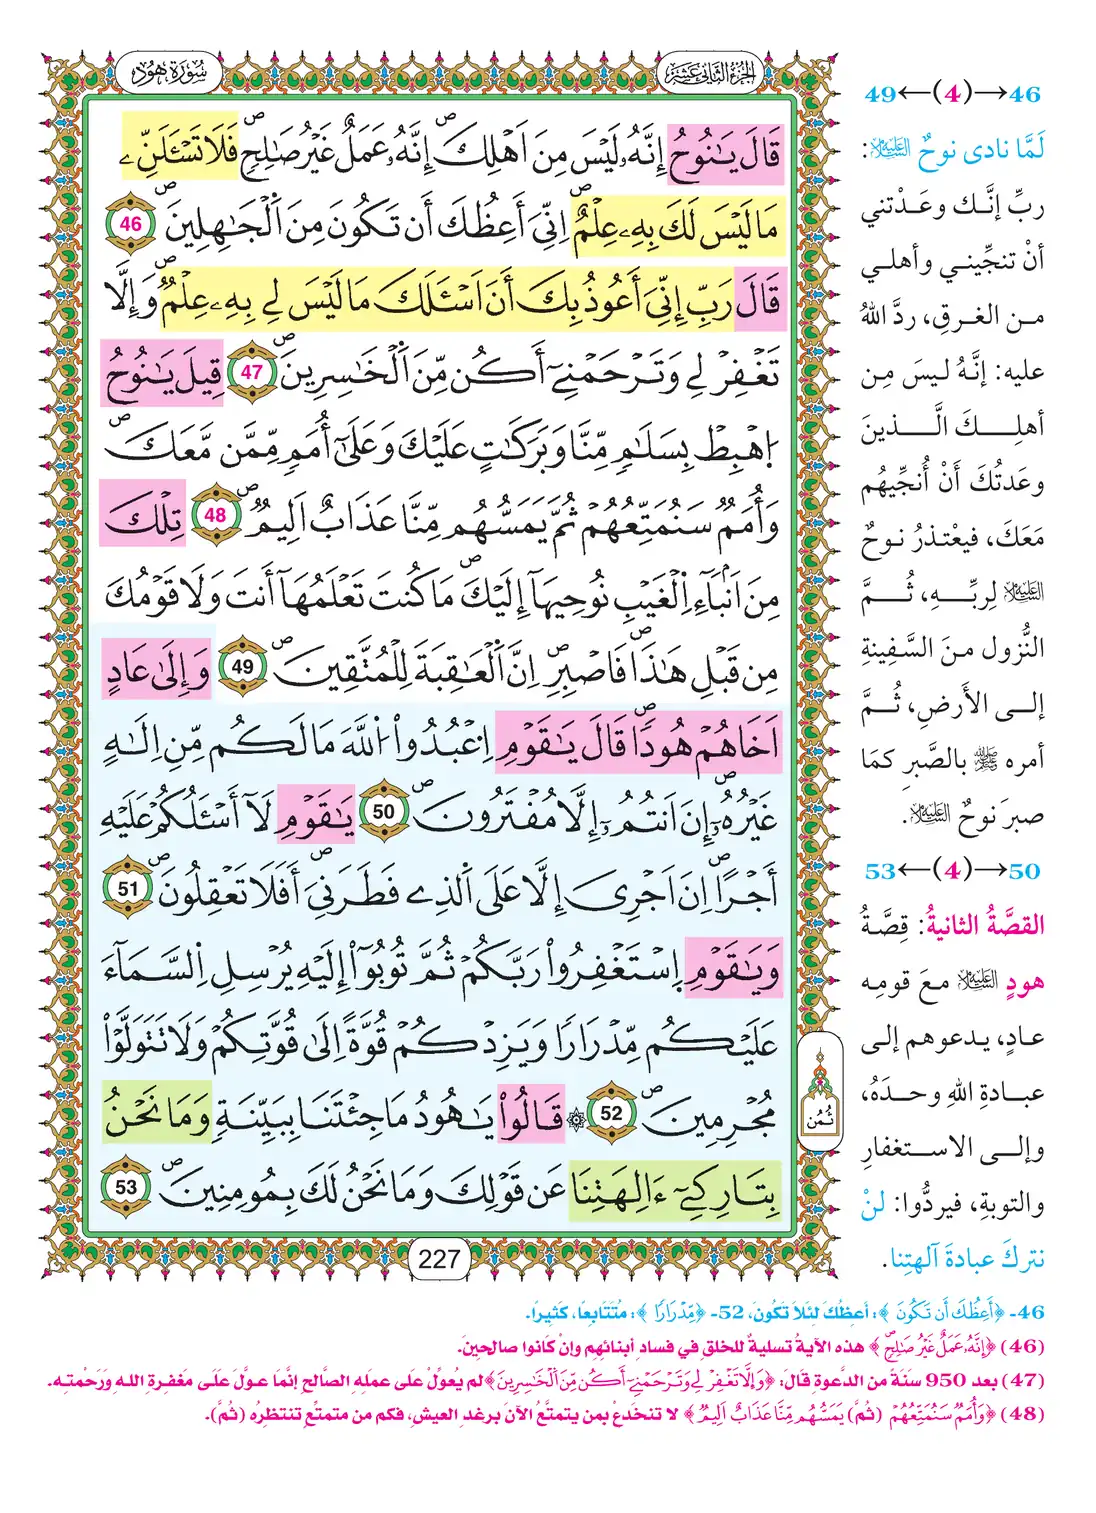 سُورَةُ هُود
الجُزْءُ الثَّانِي عَشَرَ
قَالَ يَٰنُوحُ إِنَّهُۥ لَيْسَ مِنَ اَهْلِكَۖ إِنَّهُۥ عَمَلٌ غَيْرُ صَٰلِحٖۖ فَلَا تَسْـَٔلَنِّۦ
مَا لَيْسَ لَكَ بِهِۦ عِلْمٌۖ اِنِّيَ أَعِظُكَ أَن تَكُونَ مِنَ اَلْجَٰهِلِينَۖ 46
قَالَ رَبِّ إِنِّيَ أَعُوذُ بِكَ أَنَ اَسْـَٔلَكَ مَا لَيْسَ لِي بِهِۦ عِلْمٌۖ وَإِلَّا
تَغْفِرْ لِي وَتَرْحَمْنِيٓ أَكُن مِّنَ اَلْخَٰسِرِينَۖ 47 قِيلَ يَٰنُوحُ
اُ۪هْبِطْ بِسَلَٰمٖ مِّنَّا وَبَرَكَٰتٍ عَلَيْكَ وَعَلَىٰٓ أُمَمٖ مِّمَّن مَّعَكَۖ
وَأُمَمٌ سَنُمَتِّعُهُمْ ثُمَّ يَمَسُّهُم مِّنَّا عَذَابٌ اَلِيمٌۖ 48 تِلْكَ
مِنَ اَنۢبَآءِ اِ۬لْغَيْبِ نُوحِيهَآ إِلَيْكَۖ مَا كُنتَ تَعْلَمُهَآ أَنتَ وَلَا قَوْمُكَ
مِن قَبْلِ هَٰذَاۖ فَاصْبِرِۖ اِنَّ اَلْعَٰقِبَةَ لِلْمُتَّقِينَۖ 49 وَإِلَىٰ عَادٍ
اَخَاهُمْ هُوداٗۖ قَالَ يَٰقَوْمِ اِ۟عْبُدُواْ اُ۬للَّهَ مَا لَكُم مِّنِ اِلَٰهٍ
غَيْرُهُۥٓۖ إِنَ اَنتُمُۥٓ إِلَّا مُفْتَرُونَۖ 50 يَٰقَوْمِ لَآ أَسْـَٔلُكُمْ عَلَيْهِ
أَجْراًۖ اِنَ اَجْرِيَ إِلَّا عَلَى اَلذِے فَطَرَنِيَۖ أَفَلَا تَعْقِلُونَۖ 51
وَيَٰقَوْمِ اِ۪سْتَغْفِرُواْ رَبَّكُمْ ثُمَّ تُوبُوٓاْ إِلَيْهِ يُرْسِلِ اِ۬لسَّمَآءَ
عَلَيْكُم مِّدْرَاراٗ وَيَزِدْكُمْ قُوَّةً اِلَىٰ قُوَّتِكُمْ وَلَا تَتَوَلَّوْاْ
مُجْرِمِينَۖ 52 ۞ قَالُواْ يَٰهُودُ مَا جِئْتَنَا بِبَيِّنَةٖ وَمَا نَحْنُ
بِتَارِكِيٓ ءَالِهَتِنَا عَن قَوْلِكَ وَمَا نَحْنُ لَكَ بِمُومِنِينَۖ 53
ثُمُن
227
46→(4)←49
لَمَّا نادى نوحٌ عليه السلام:
ربِّ إنَّك وعَدْتني
أنْ تنجِّيني وأهلي
من الغرقِ، ردَّ اللهُ
عليه: إنَّهُ ليسَ مِن
أهلِكَ الَّذينَ
وعَدتُكَ أَنْ أُنجِّيهُم
مَعَكَ، فيعْتذرُ نوحٌ
عليه السلام لِربِّهِ، ثُمَّ
النُّزول منَ السَّفِينةِ
إلى الأَرضِ، ثُمَّ
أمره ﷺ بالصَّبرِ كمَا
صبرَ نوحٌ عليه السلام.
50→(4)←53
القصَّةُ الثانيةُ: قِصَّةُ
هودٍ عليه السلام معَ قومِه
عادٍ، يدعوهم إلى
عبادةِ اللهِ وحدَهُ،
وإلى الاستغفارِ
والتوبةِ، فيردُّوا: لنْ
نتركَ عبادةَ آلهتِنا.
46- ﴿أَعِظُكَ أَن تَكُونَ﴾: أعِظُكَ لِئَلاَ تَكُونَ، 52- ﴿مِّدْرَارًا﴾: مُتَتَابِعًا، كَثِيرًا.
(46) ﴿إِنَّهُۥ عَمَلٌ غَيْرُ صَٰلِحٖۖ﴾ هذه الآيةُ تسليةٌ للخلقِ في فسادِ أبنائهِم وإنْ كانوا صالحينَ.
(47) بعد 950 سنَةً من الدَّعوةِ قالَ: ﴿وَإِلَّا تَغْفِرْ لِي وَتَرْحَمْنِيٓ أَكُن مِّنَ اَلْخَٰسِرِينَ﴾ لم يعُولْ على عملِه الصَّالحِ إنَّما عوَّلَ علَى مغفرةِ اللهِ ورَحْمتِه.
(48) ﴿وَأُمَمٌ سَنُمَتِّعُهُمْ (ثُمَّ) يَمَسُّهُم مِّنَّا عَذَابٌ اَلِيمٌ﴾ لا تنخدعْ بمن يتمتَّعُ الآنَ برغدِ العيشِ، فكم من متمتِّعٍ تنتظرُه (ثُمَّ).